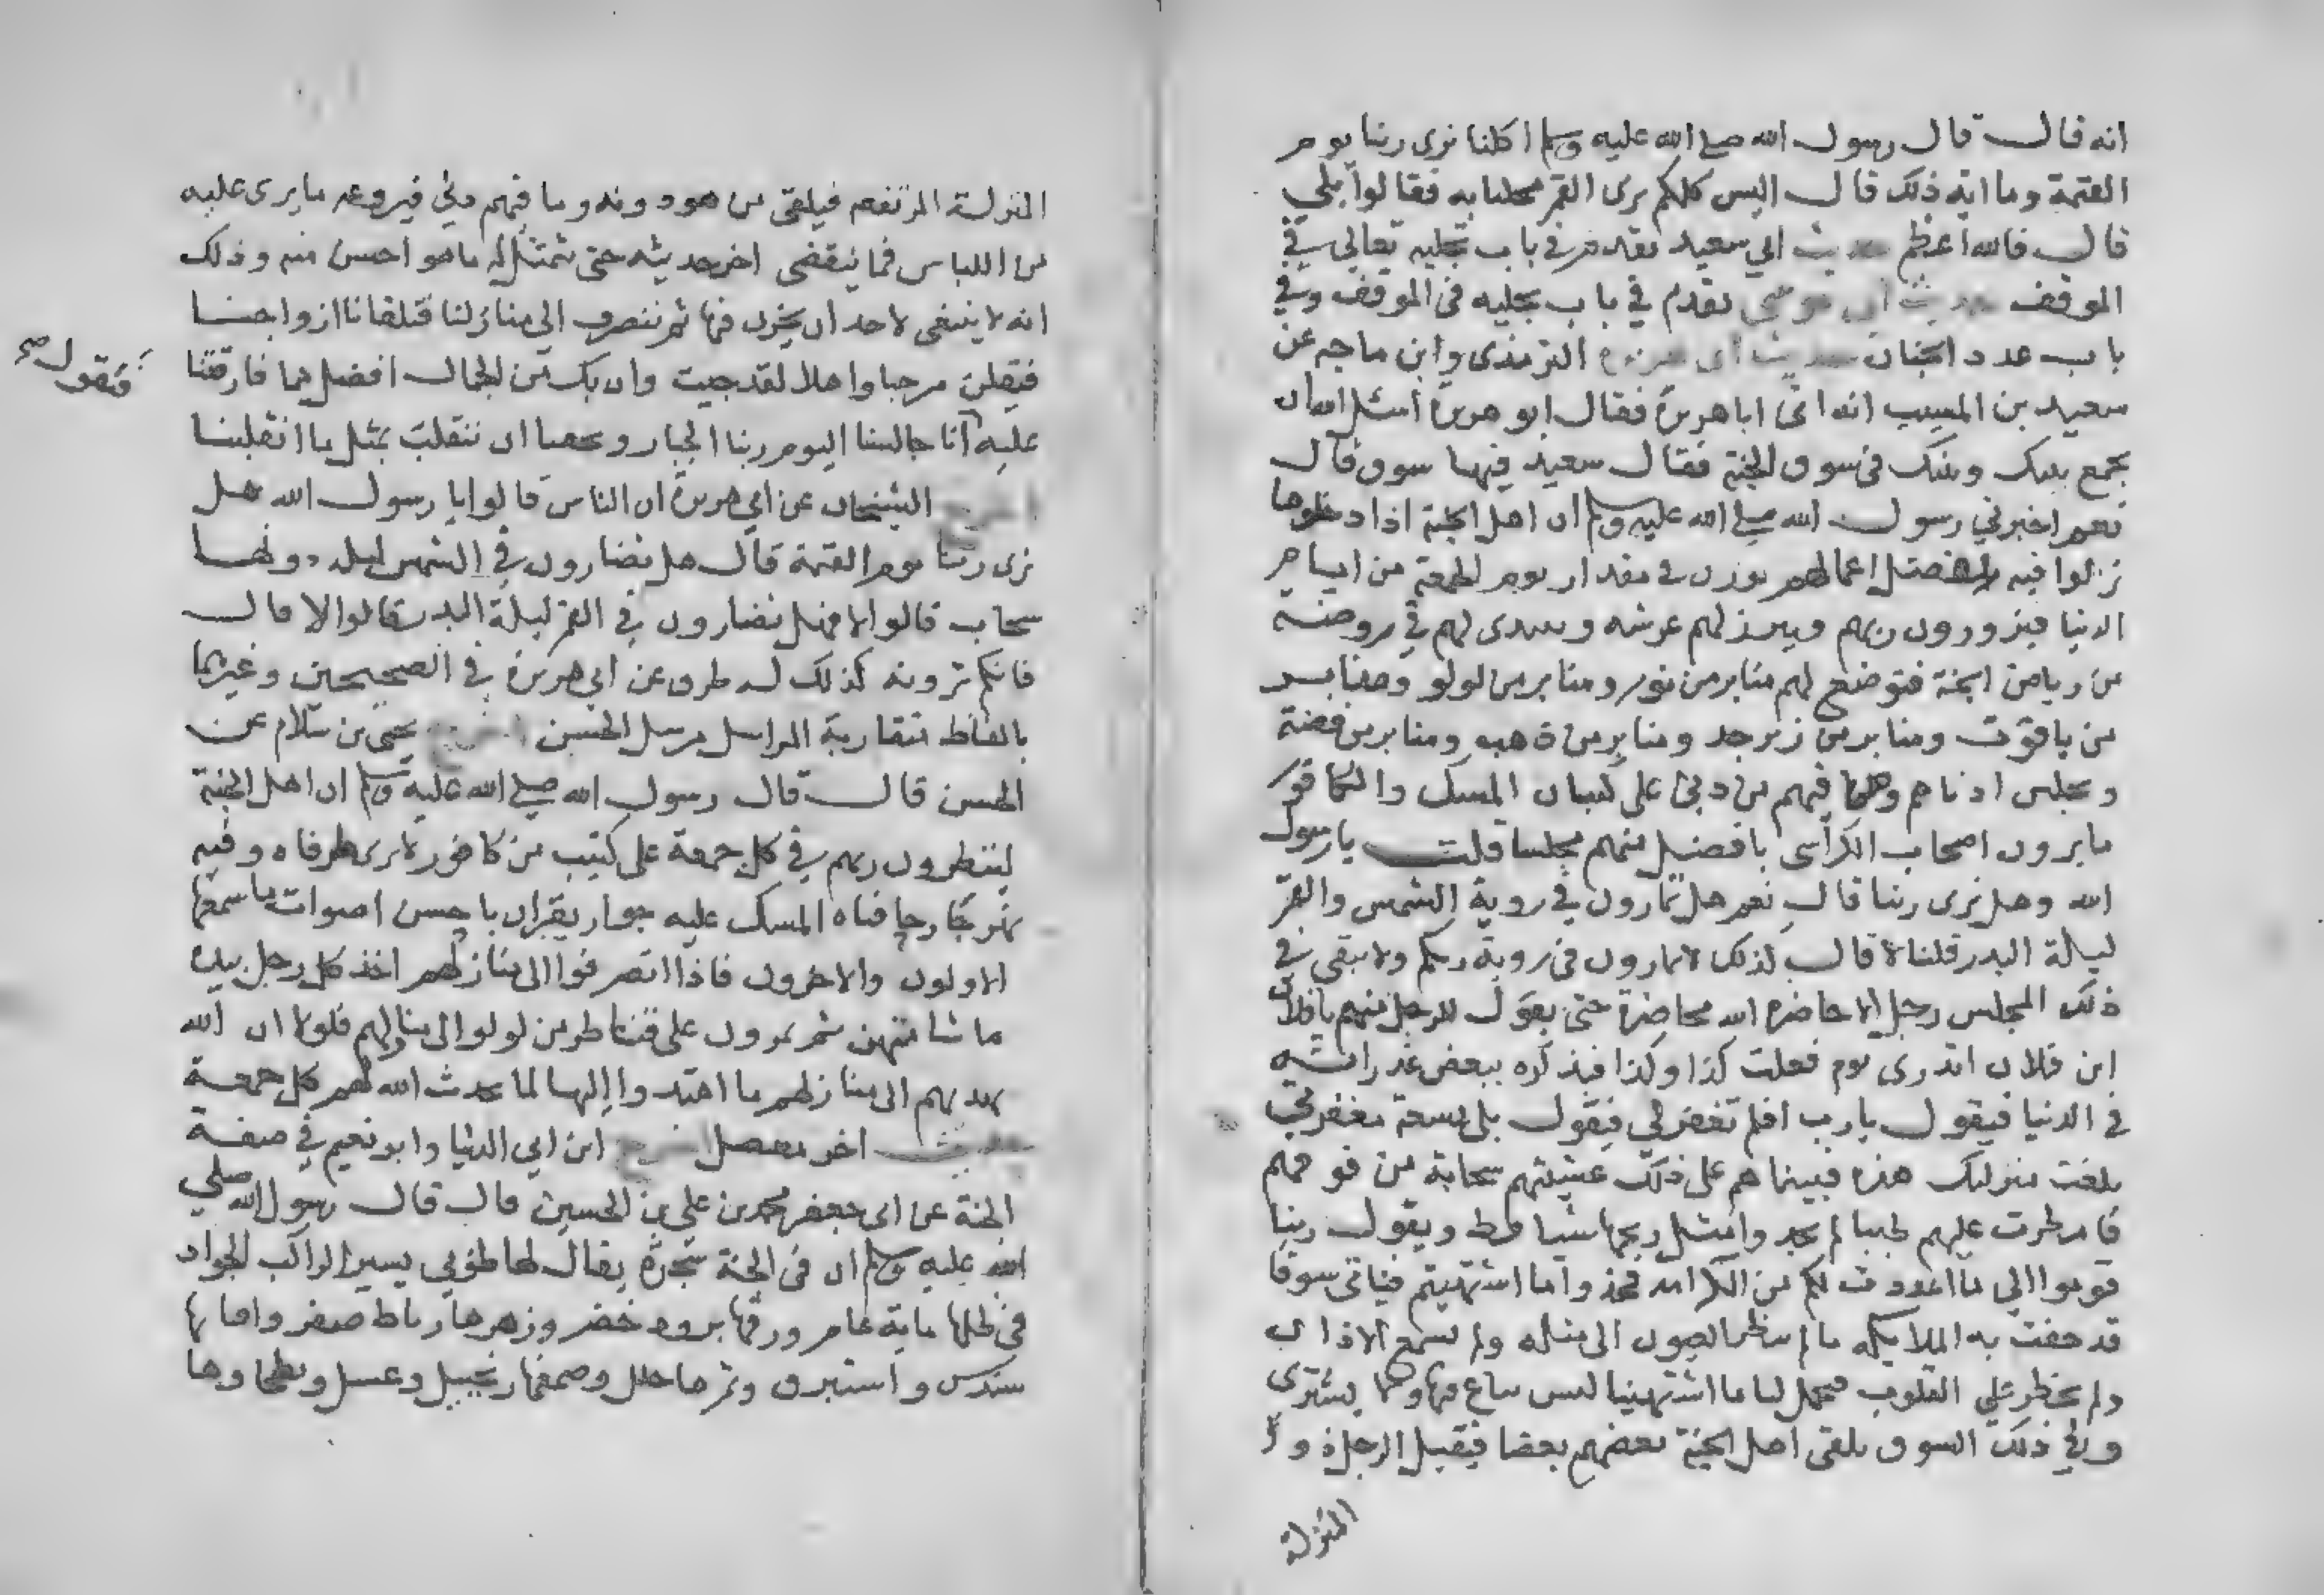 انه قال قال رسول الله صلى الله عليه وسلم اكلنا نرى ربنا يوم
القيمة وما اية ذلك قال اليس كلكم يرى القمر مخليا به فقالوا بلى
قال فالله اعظم حديث ابي سعيد تقدم في باب تجليه تعالى في
الموقف حديث ابي موسى تقدم في باب تجليه في الموقف وفي
باب عدد الجنان حديث ابي هريرة الترمذي وابن ماجه عن
سعيد بن المسيب انه اتى ابا هريرة فقال ابو هريرة اسئل الله ان
يجمع بيني وبينك في سوق الجنة فقال سعيد فيها سوق قال
نعم اخبرني رسول الله صلى الله عليه وسلم ان اهل الجنة اذا دخلوها
نزلوا فيه بفضل اعمالهم يوزن في مقدار يوم الجمعة من ايام
الدنيا فيزورون ربهم ويبرز لهم عرشه ويتبدى لهم في روضة
من رياض الجنة فتوضع لهم منابر من نور ومنابر من لولو ومنابر
من ياقوت ومنابر من زبرجد ومنابر من ذهب ومنابر من فضة
ويجلس ادناهم وما فيهم من دني على كثبان المسك والكافور
ما يرون اصحاب الكراسي بافضل منهم مجلسا قلت يا رسول
الله وهل نرى ربنا قال نعم هل تمارون في روية الشمس والقمر
ليلة البدر قلنا لا قال كذلك لا تمارون في روية ربكم ولا يبقى في
ذلك المجلس رجل الا حاضره الله محاضرة حتى يقول للرجل منهم يا فلان
ابن فلان اتدري يوم فعلت كذا وكذا فيذكره ببعض غدراته
في الدنيا فيقول يا رب افلم تغفر لي فيقول بلى بسعة مغفرتي
بلغت منزلتك هذه فبينما هم على ذلك غشيتهم سحابة من فوقهم
فامطرت عليهم طيبا لم يجدوا مثل ريحه شيا قط ويقول ربنا
قوموا الى ما اعددت لكم من الكرامة فخذوا ما اشتهيتم فياتي سوقا
قد حفت به الملايكة ما لم تنظر العيون الى مثله ولم تسمع الاذان
ولم يخطر على القلوب فيحمل لنا ما اشتهينا ليس يباع فيها ولا يشترى
وفي ذلك السوق يلقى اهل الجنة بعضهم بعضا فيقبل الرجل ذو
المنزلة
المنزلة المرتفعة فيلقى من هو دونه وما فيهم دني فيروعه ما يرى عليه
من اللباس فما ينقضي اخر حديثه حتى يتمثل له ما هو احسن منه وذلك
انه لا ينبغي لاحد ان يحزن فيها ثم ننصرف الى منازلنا فتلقانا ازواجنا
فيقلن مرحبا واهلا لقد جيت وان بك من الجمال افضل مما فارقتنا
فنقول صح
عليه انا جالسنا اليوم ربنا الجبار وبحقنا ان ننقلب بمثل ما انقلبنا
اخرج الشيخان عن ابي هريرة ان الناس قالوا يا رسول الله هل
نرى ربنا يوم القيمة قال هل تضارون في الشمس ليس دونها
سحاب قالوا لا فهل تضارون في القمر ليلة البدر قالوا لا قال
فانكم ترونه كذلك له طرق عن ابي هريرة في الصحيحين وغيرهما
بالفاظ متقاربة المراسل مرسل الحسن اخرج يحيى بن سلام عن
الحسن قال قال رسول الله صلى الله عليه وسلم ان اهل الجنة
لينظرون ربهم في كل جمعة على كثيب من كافور لا يرى طرفاه وفيه
نهر جار حافتاه المسك عليه جوار يقران باحسن اصوات ما سمعها
الاولون والاخرون فاذا انصرفوا الى منازلهم اخذ كل رجل بيده
ما شا منهن ثم يمرون على قناطر من لولو الى منازلهم فلولا ان الله
يهديهم الى منازلهم ما اهتدوا اليها لما يحدث الله لهم كل جمعة
حديث اخر معضل اخرج ابن ابي الدنيا وابو نعيم في صفة
الجنة عن ابي جعفر محمد بن علي بن الحسين قال قال رسول الله صلى
الله عليه وسلم ان في الجنة شجرة يقال لها طوبى يسير الراكب الجواد
في ظلها ماية عام ورقها برود خضر وزهرها رياط صفر وافنانها
سندس واستبرق وثمرها حلل وصمغها زنجبيل وعسل وبطحاوها